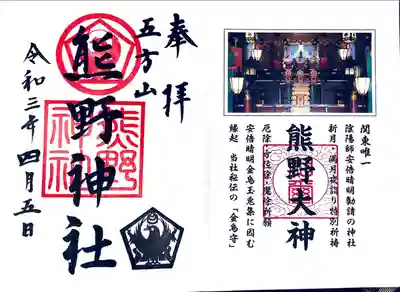 奉拝
五方山
熊野神社
令和三年四月五日
熊野神社
関東唯一
陰陽師安倍晴明勧請の神社
新月・満月夜詣り特別祈祷
熊野大神
厄除・方位除・魔除祈願
安倍晴明金烏玉兎集に因む
縁起 当社秘伝の「金烏守」